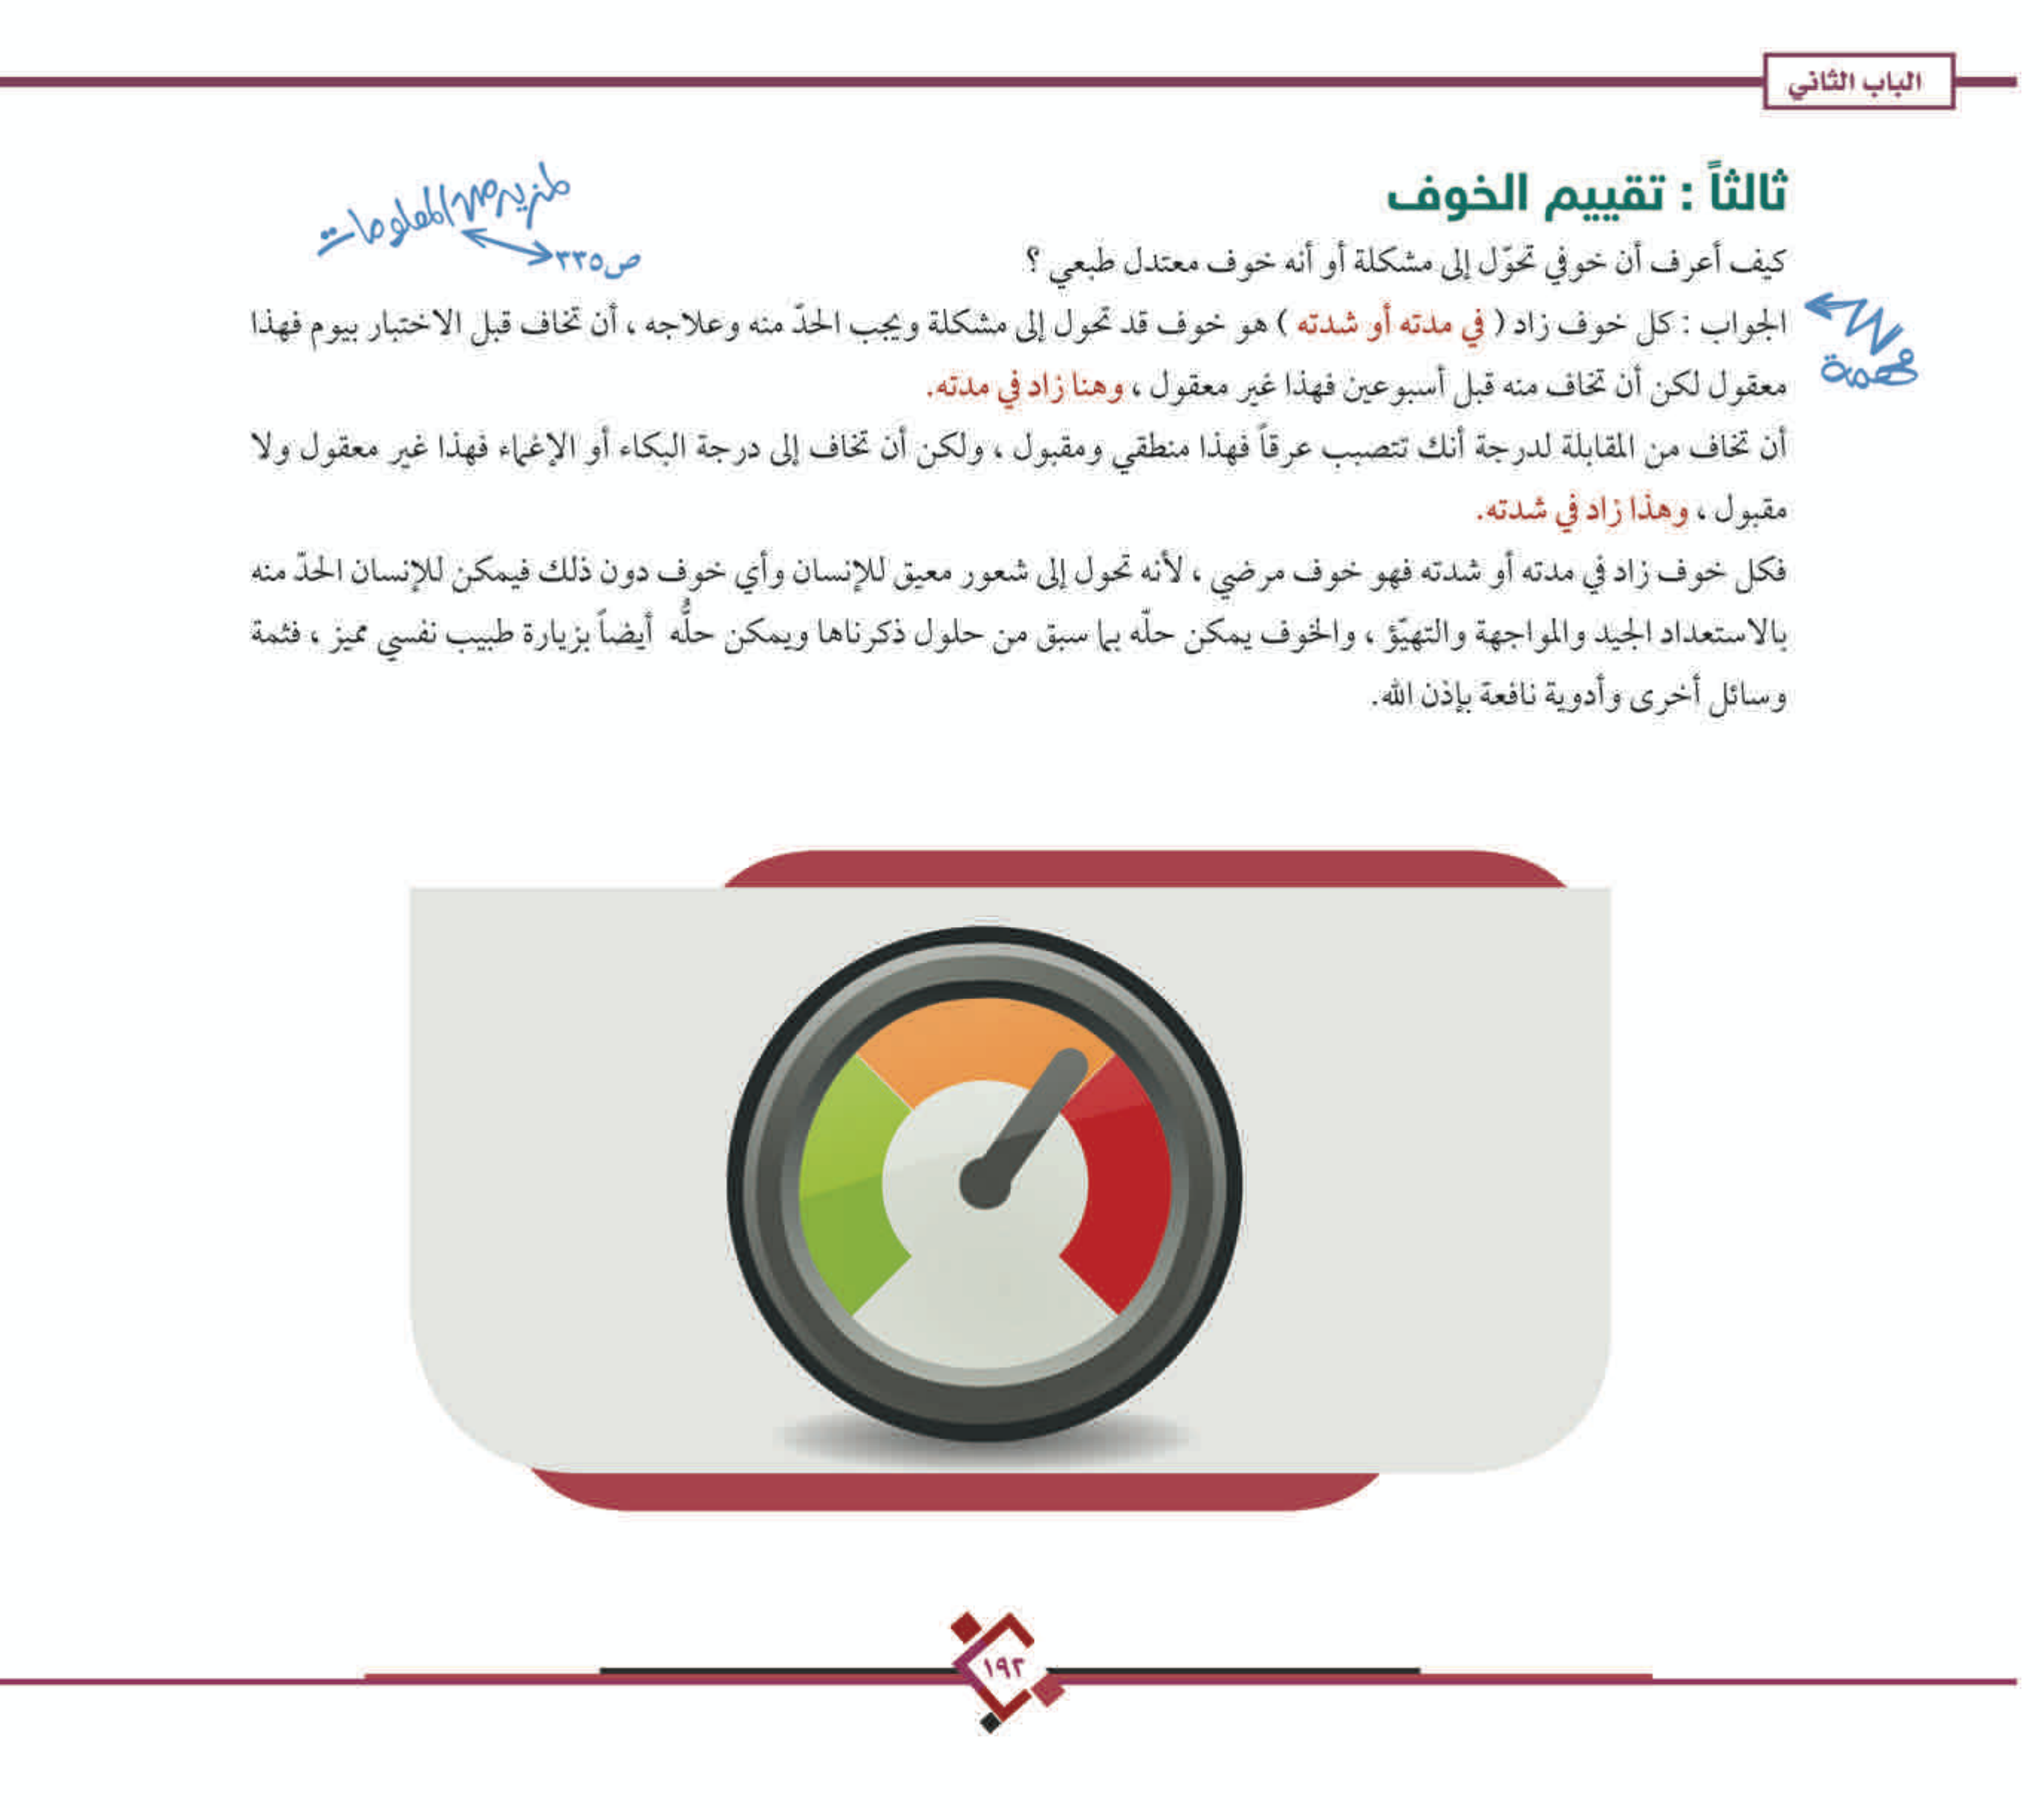 الباب الثاني
ثالثاً : تقييم الخوف
لمزيد من المعلومات
ص٣٣٥
كيف أعرف أن خوفي تحوّل إلى مشكلة أو أنه خوف معتدل طبعي ؟
مهمة
الجواب : كل خوف زاد ( في مدته أو شدته ) هو خوف قد تحول إلى مشكلة ويجب الحدّ منه وعلاجه ، أن تخاف قبل الاختبار بيوم فهذا
معقول لكن أن تخاف منه قبل أسبوعين فهذا غير معقول ، وهنا زاد في مدته.
أن تخاف من المقابلة لدرجة أنك تتصبب عرقاً فهذا منطقي ومقبول ، ولكن أن تخاف إلى درجة البكاء أو الإغماء فهذا غير معقول ولا
مقبول ، وهذا زاد في شدته.
فكل خوف زاد في مدته أو شدته فهو خوف مرضي ، لأنه تحول إلى شعور معيق للإنسان وأي خوف دون ذلك فيمكن للإنسان الحدّ منه
بالاستعداد الجيد والمواجهة والتهيّؤ ، والخوف يمكن حلّه بما سبق من حلول ذكرناها ويمكن حلُّه أيضاً بزيارة طبيب نفسي مميز ، فثمة
وسائل أخرى وأدوية نافعة بإذن الله.
١٩٢